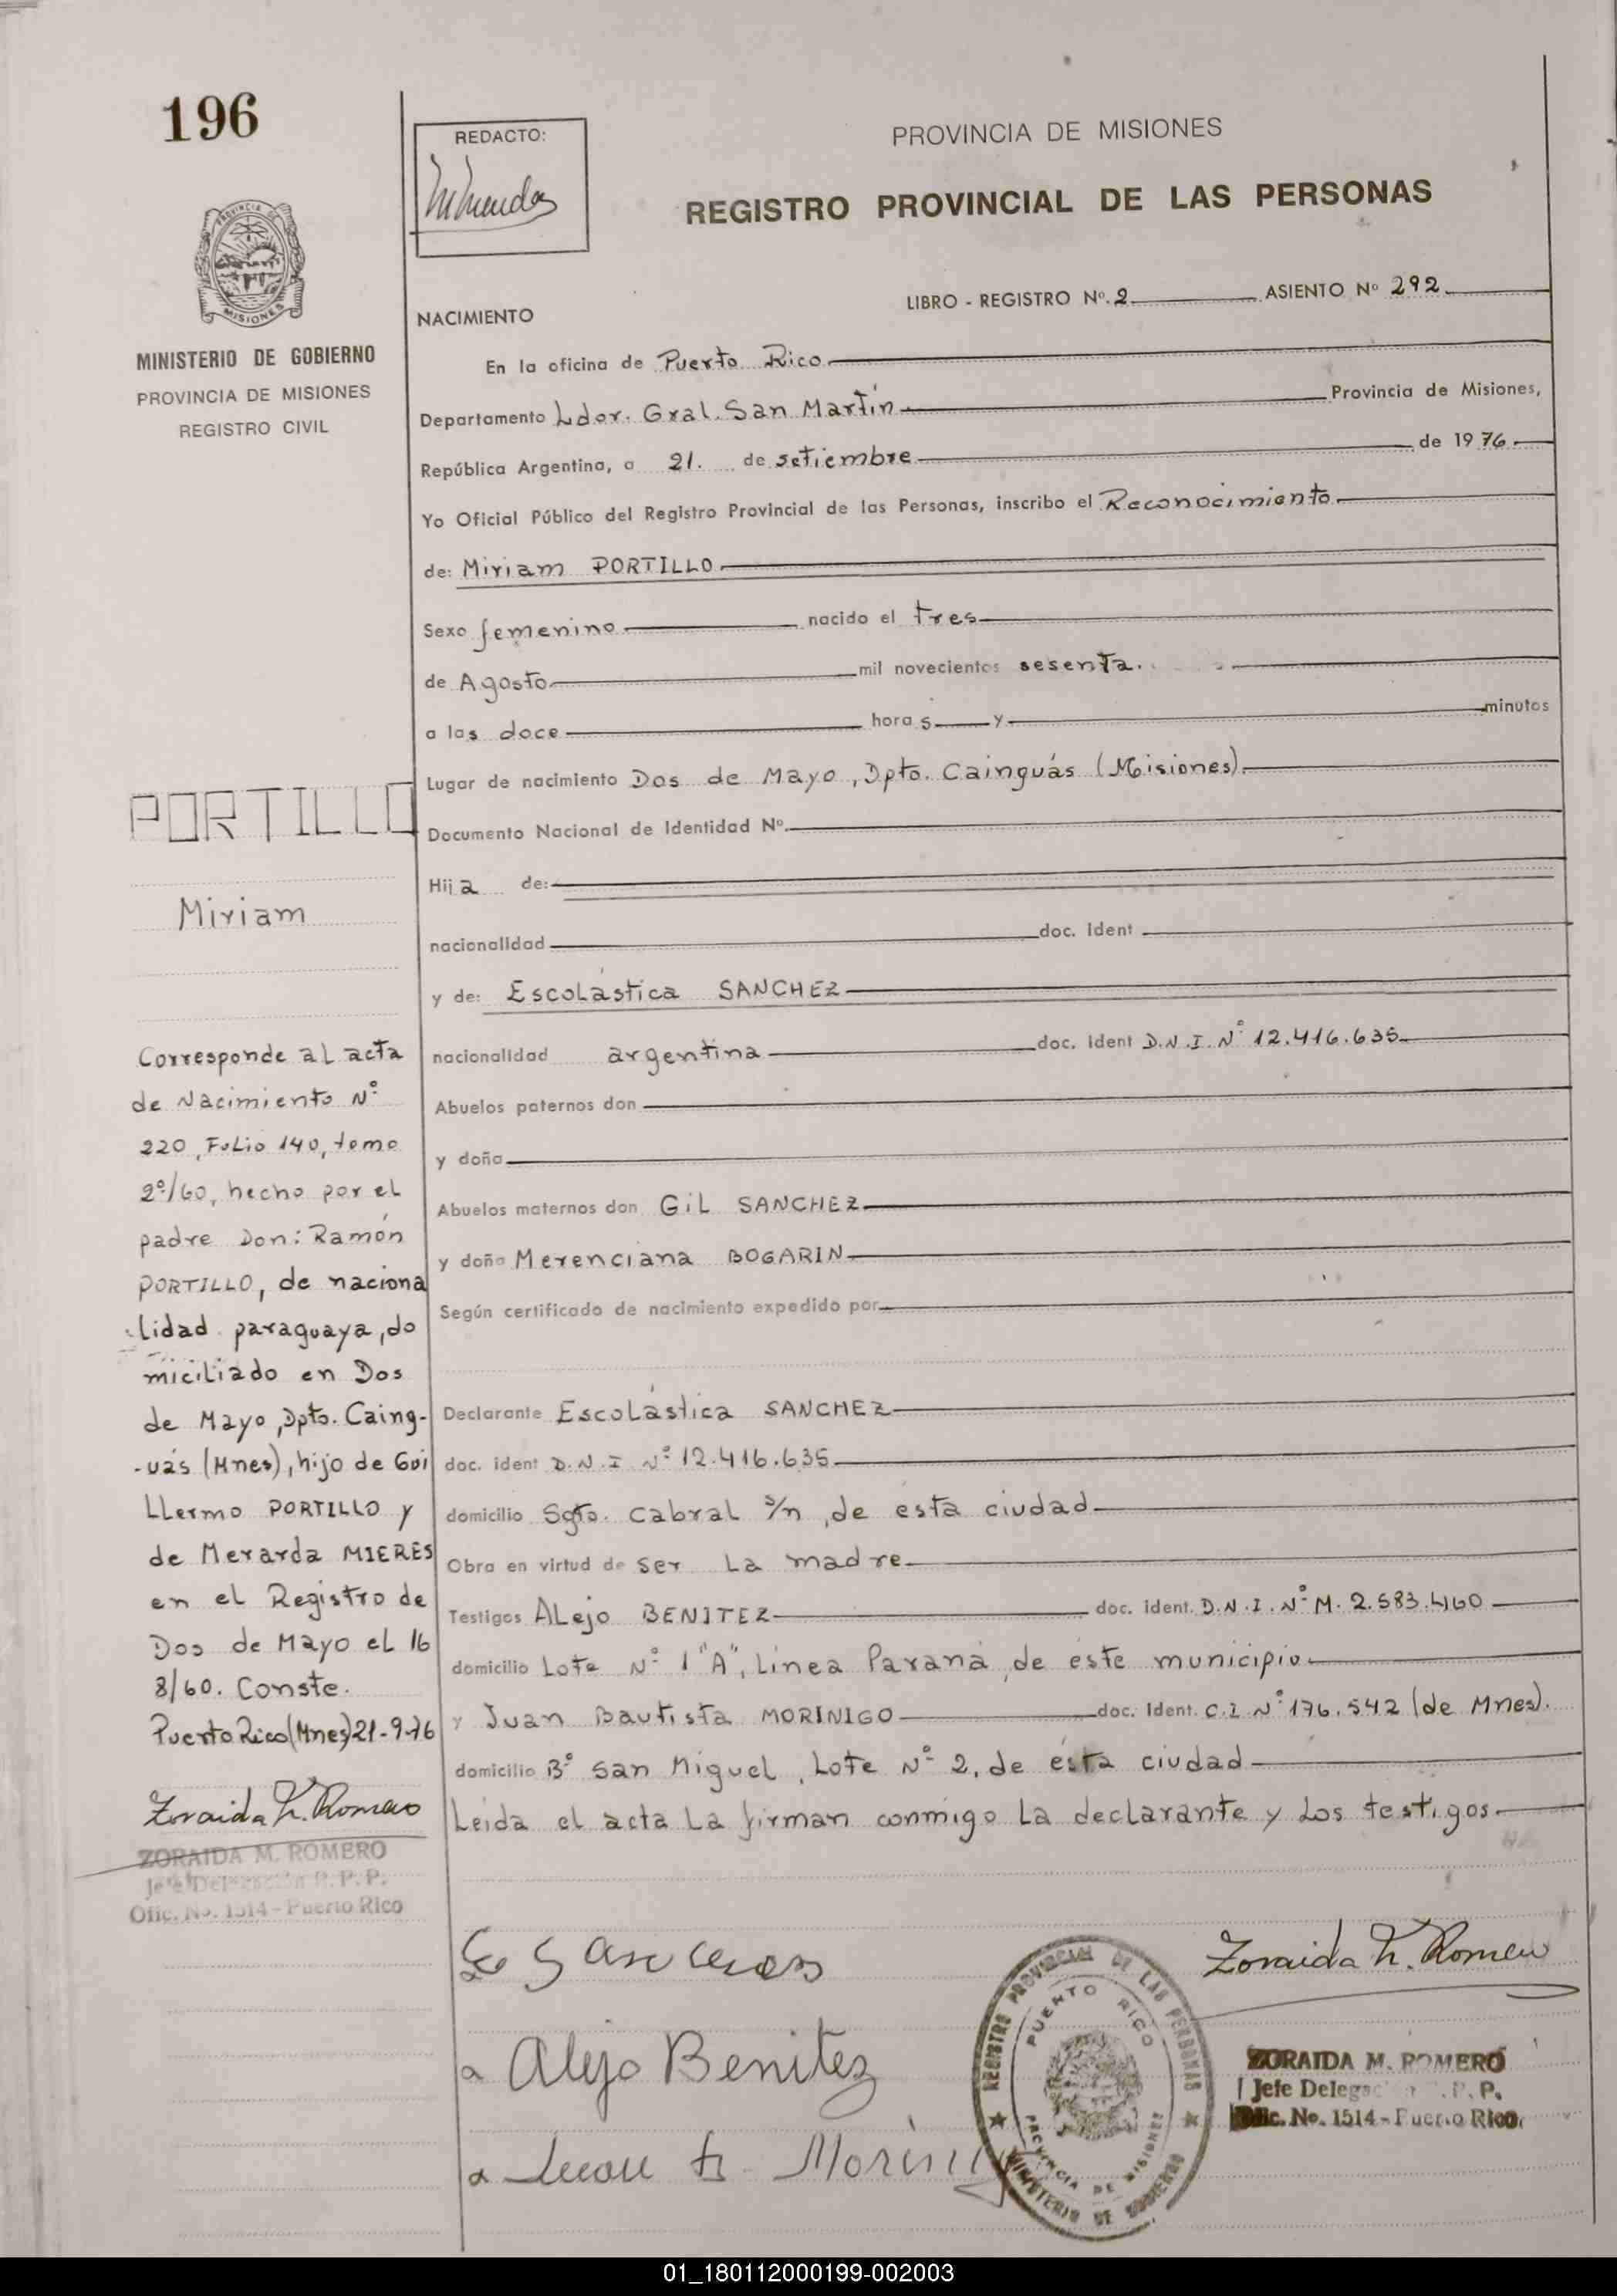 196
REDACTO:
PROVINCIA DE MISIONES
REGISTRO PROVINCIAL DE LAS PERSONAS
PROVINCIA DE
MISIONES
MINISTERIO DE GOBIERNO
PROVINCIA DE MISIONES
REGISTRO CIVIL
LIBRO - REGISTRO Nº. 2 ASIENTO Nº 292
NACIMIENTO
En la oficina de Puerto Rico
Departamento Ldor. Gral. San Martín Provincia de Misiones,
República Argentina, a 21. de setiembre de 1976
Yo Oficial Público del Registro Provincial de las Personas, inscribo el Reconocimiento
de: Miriam PORTILLO
Sexo femenino nacido el tres
de Agosto mil novecientos sesenta.
a las doce horas y minutos
Lugar de nacimiento Dos de Mayo, Dpto. Cainguás (Misiones)
Documento Nacional de Identidad Nº.
Hija de:
nacionalidad doc. ident
y de: Escolástica SANCHEZ
nacionalidad argentina doc. ident D.N.I. Nº 12.416.635
Abuelos paternos don
y doña
Abuelos maternos don Gil SANCHEZ
y doña Merenciana BOGARIN
Según certificado de nacimiento expedido por
Declarante Escolástica SANCHEZ
doc. ident D.N.I Nº 12.416.635
domicilio Sgto. Cabral s/n, de ésta ciudad
Obra en virtud de ser la madre
Testigos Alejo BENITEZ doc. ident. D.N.I. Nº M. 2.583.460
domicilio Lote Nº 1 "A", Línea Paraná, de éste municipio
y Juan Bautista MORINIGO doc. ident. C.I Nº 176.542 (de Mnes).
domicilio Bº San Miguel, Lote Nº 2, de ésta ciudad
Leída el acta la firman conmigo la declarante y los testigos
PORTILLO
Miriam
Corresponde al acta
de Nacimiento Nº
220, Folio 140, tomo
2º/60, hecho por el
padre Don: Ramón
PORTILLO, de naciona
lidad paraguaya, do
miciliado en Dos
de Mayo, Dpto. Caing-
-uás (Mnes), hijo de Gui
llermo PORTILLO y
de Merarda MIERES
en el Registro de
Dos de Mayo el 16
8/60. Conste.
Puerto Rico (Mnes) 21-9-76
Zoraida M. Romero
ZORAIDA M. ROMERO
Jefe Delegación R. P. P.
Ofic. No. 1514 - Puerto Rico
Zoraida M. Romero
Alejo Benitez
REGISTRO PROVINCIAL DE LAS PERSONAS
PUERTO RICO
PROVINCIA DE MISIONES
MINISTERIO DE GOBIERNO
ZORAIDA M. ROMERO
Jefe Delegac P. P.
Ofic. No. 1514 - Puerto Rico
01_180112000199-002003